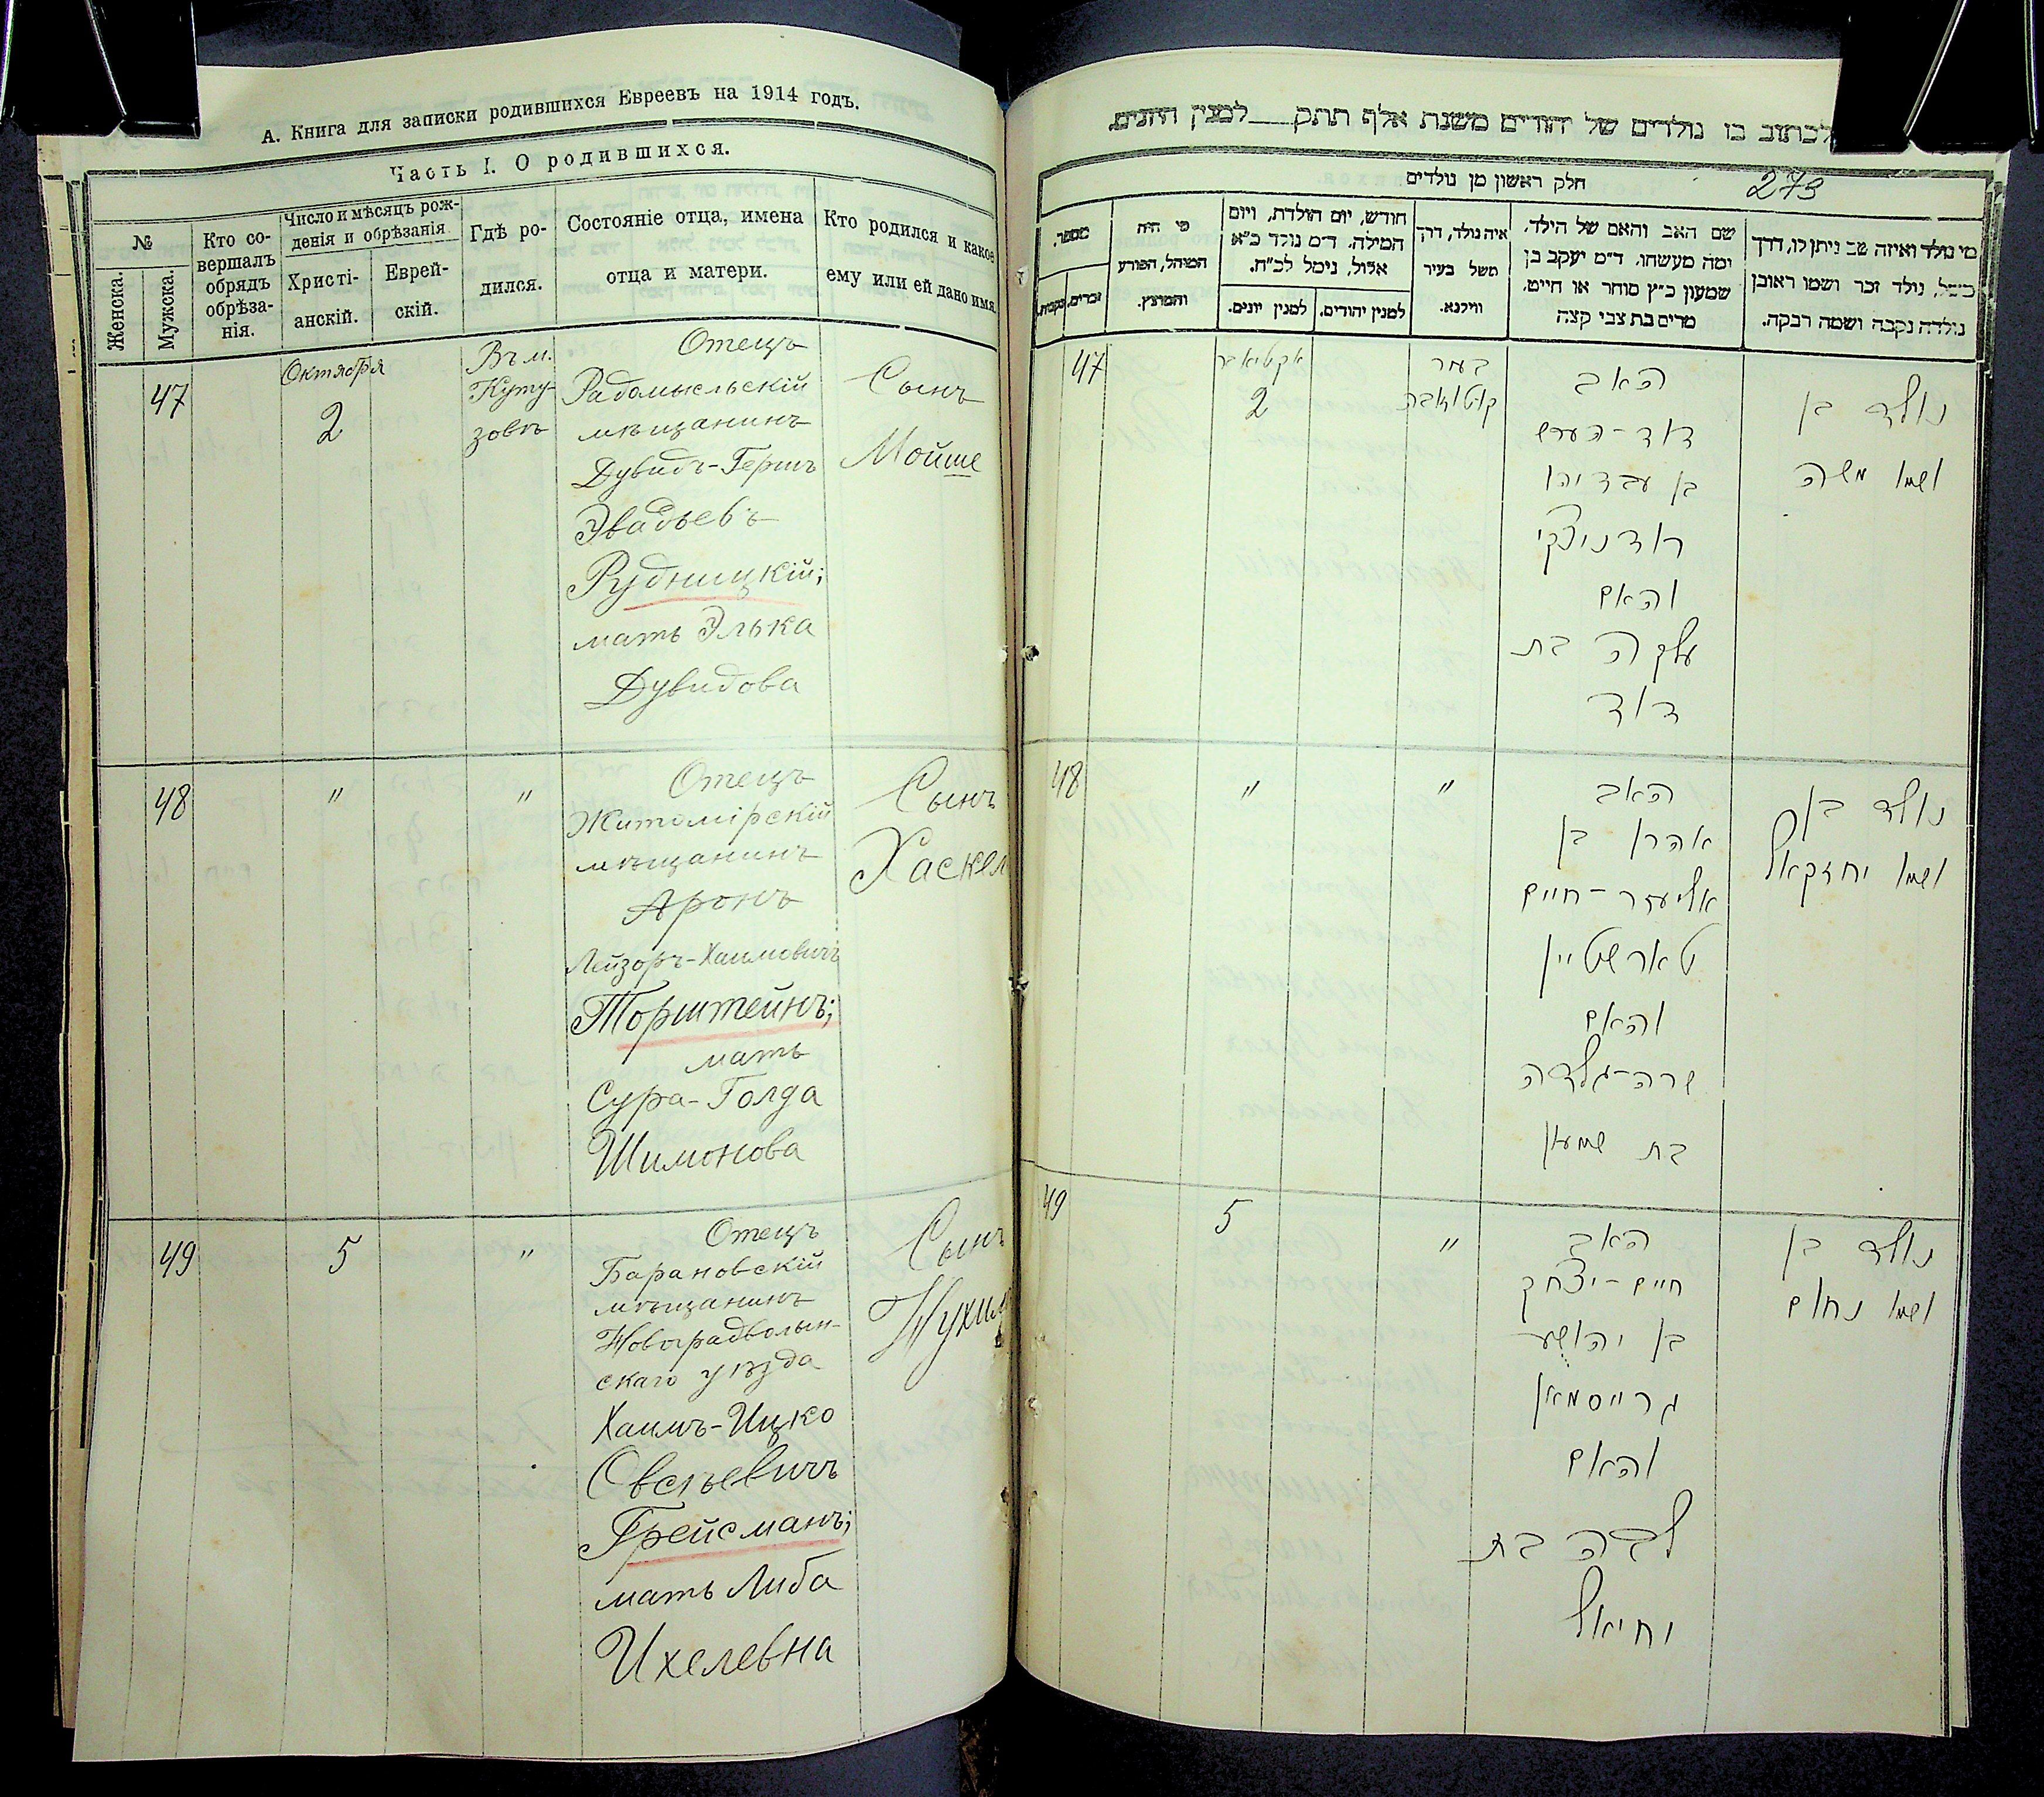 А. Книга для записки родившихся Евреевъ на 1914 годъ.
Часть I. О родившихся.
№
Женска.
Мужска.
Кто со-
вершалъ
обрядъ
обрѣза-
нія.
Число и мѣсяцъ рож-
денія и обрѣзанія
Христі-
анскій.
Еврей-
скій.
Гдѣ ро-
дился.
Состояніе отца, имена
отца и матери.
Кто родился и какое
ему или ей дано имя.
47
Октября
2
Въ м.
Куту-
зовѣ
Отецъ
Радомысльскій
мѣщанинъ
Дувидъ-Гершъ
Эвадьевъ
Рудницкій;
мать Элька
Дувидова
Сынъ
Мойше
48
"
"
Отецъ
Житомірскій
мѣщанинъ
Аронъ
Лейзоръ-Хаимовичъ
Торштейнъ;
мать
Сура-Голда
Шимонова
Сынъ
Хаскел
49
5
"
Отецъ
Барановскій
мѣщанинъ
Новоградволын-
скаго уѣзда
Хаимъ-Ицко
Овсѣевичъ
Грейсманъ;
мать Либа
Ихелевна
Сынъ
Нухим
לכתוב בו נולדים של יהודים משנת אלף תתק למנין היונים.
חלק ראשון מן נולדים
273
מי נולד ואיזה שב ניתן לו, דרך
משל, נולד זכר ושמו ראובן
נולדה נקבה ושמה רבקה.
שם האב והאם של הילד,
ומה מעשהו. ד"מ יעקב בן
שמעון כ"ץ סוחר או חייט,
מרים בת צבי קצה
איה נולד, דרך
משל בעיר
ווילנא.
חודש, יום הולדת, ויום
המילה. ד"מ נולד כ"א
אלול, נימל לכ"ח.
למנין יהודים.
למנין יונים.
מי היה
המוהל, הפורע
והמוצץ.
מספר.
זכרים.
נקבות.
47
אקטיאבר
2
בעיר
האב
דוד-הערש
בן עבדיהו
רודניצקי
והאם
עלקה בת
דוד
נולד בן
ושמו משה
48
"
"
האב
אהרן בן
אליעזר-חיים
טארשטיין
והאם
שרה-גולדה
בת שמעון
נולד בן
ושמו יחזקאל
49
5
"
האב
חיים-יצחק
בן יהושע
גרייסמאן
והאם
ליבה בת
יחיאל
נולד בן
ושמו נחום